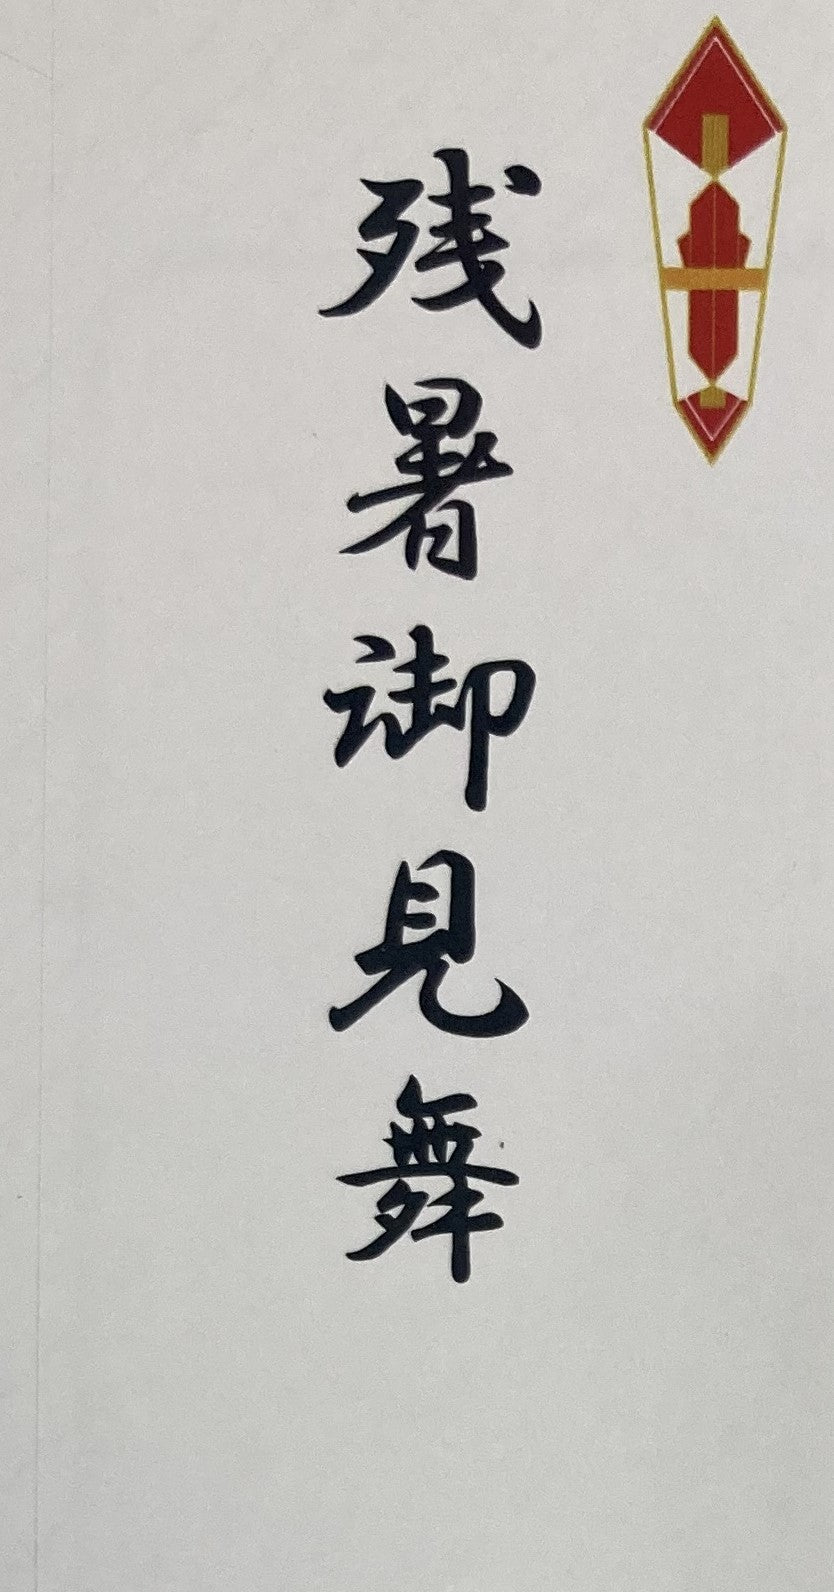 残暑御見舞